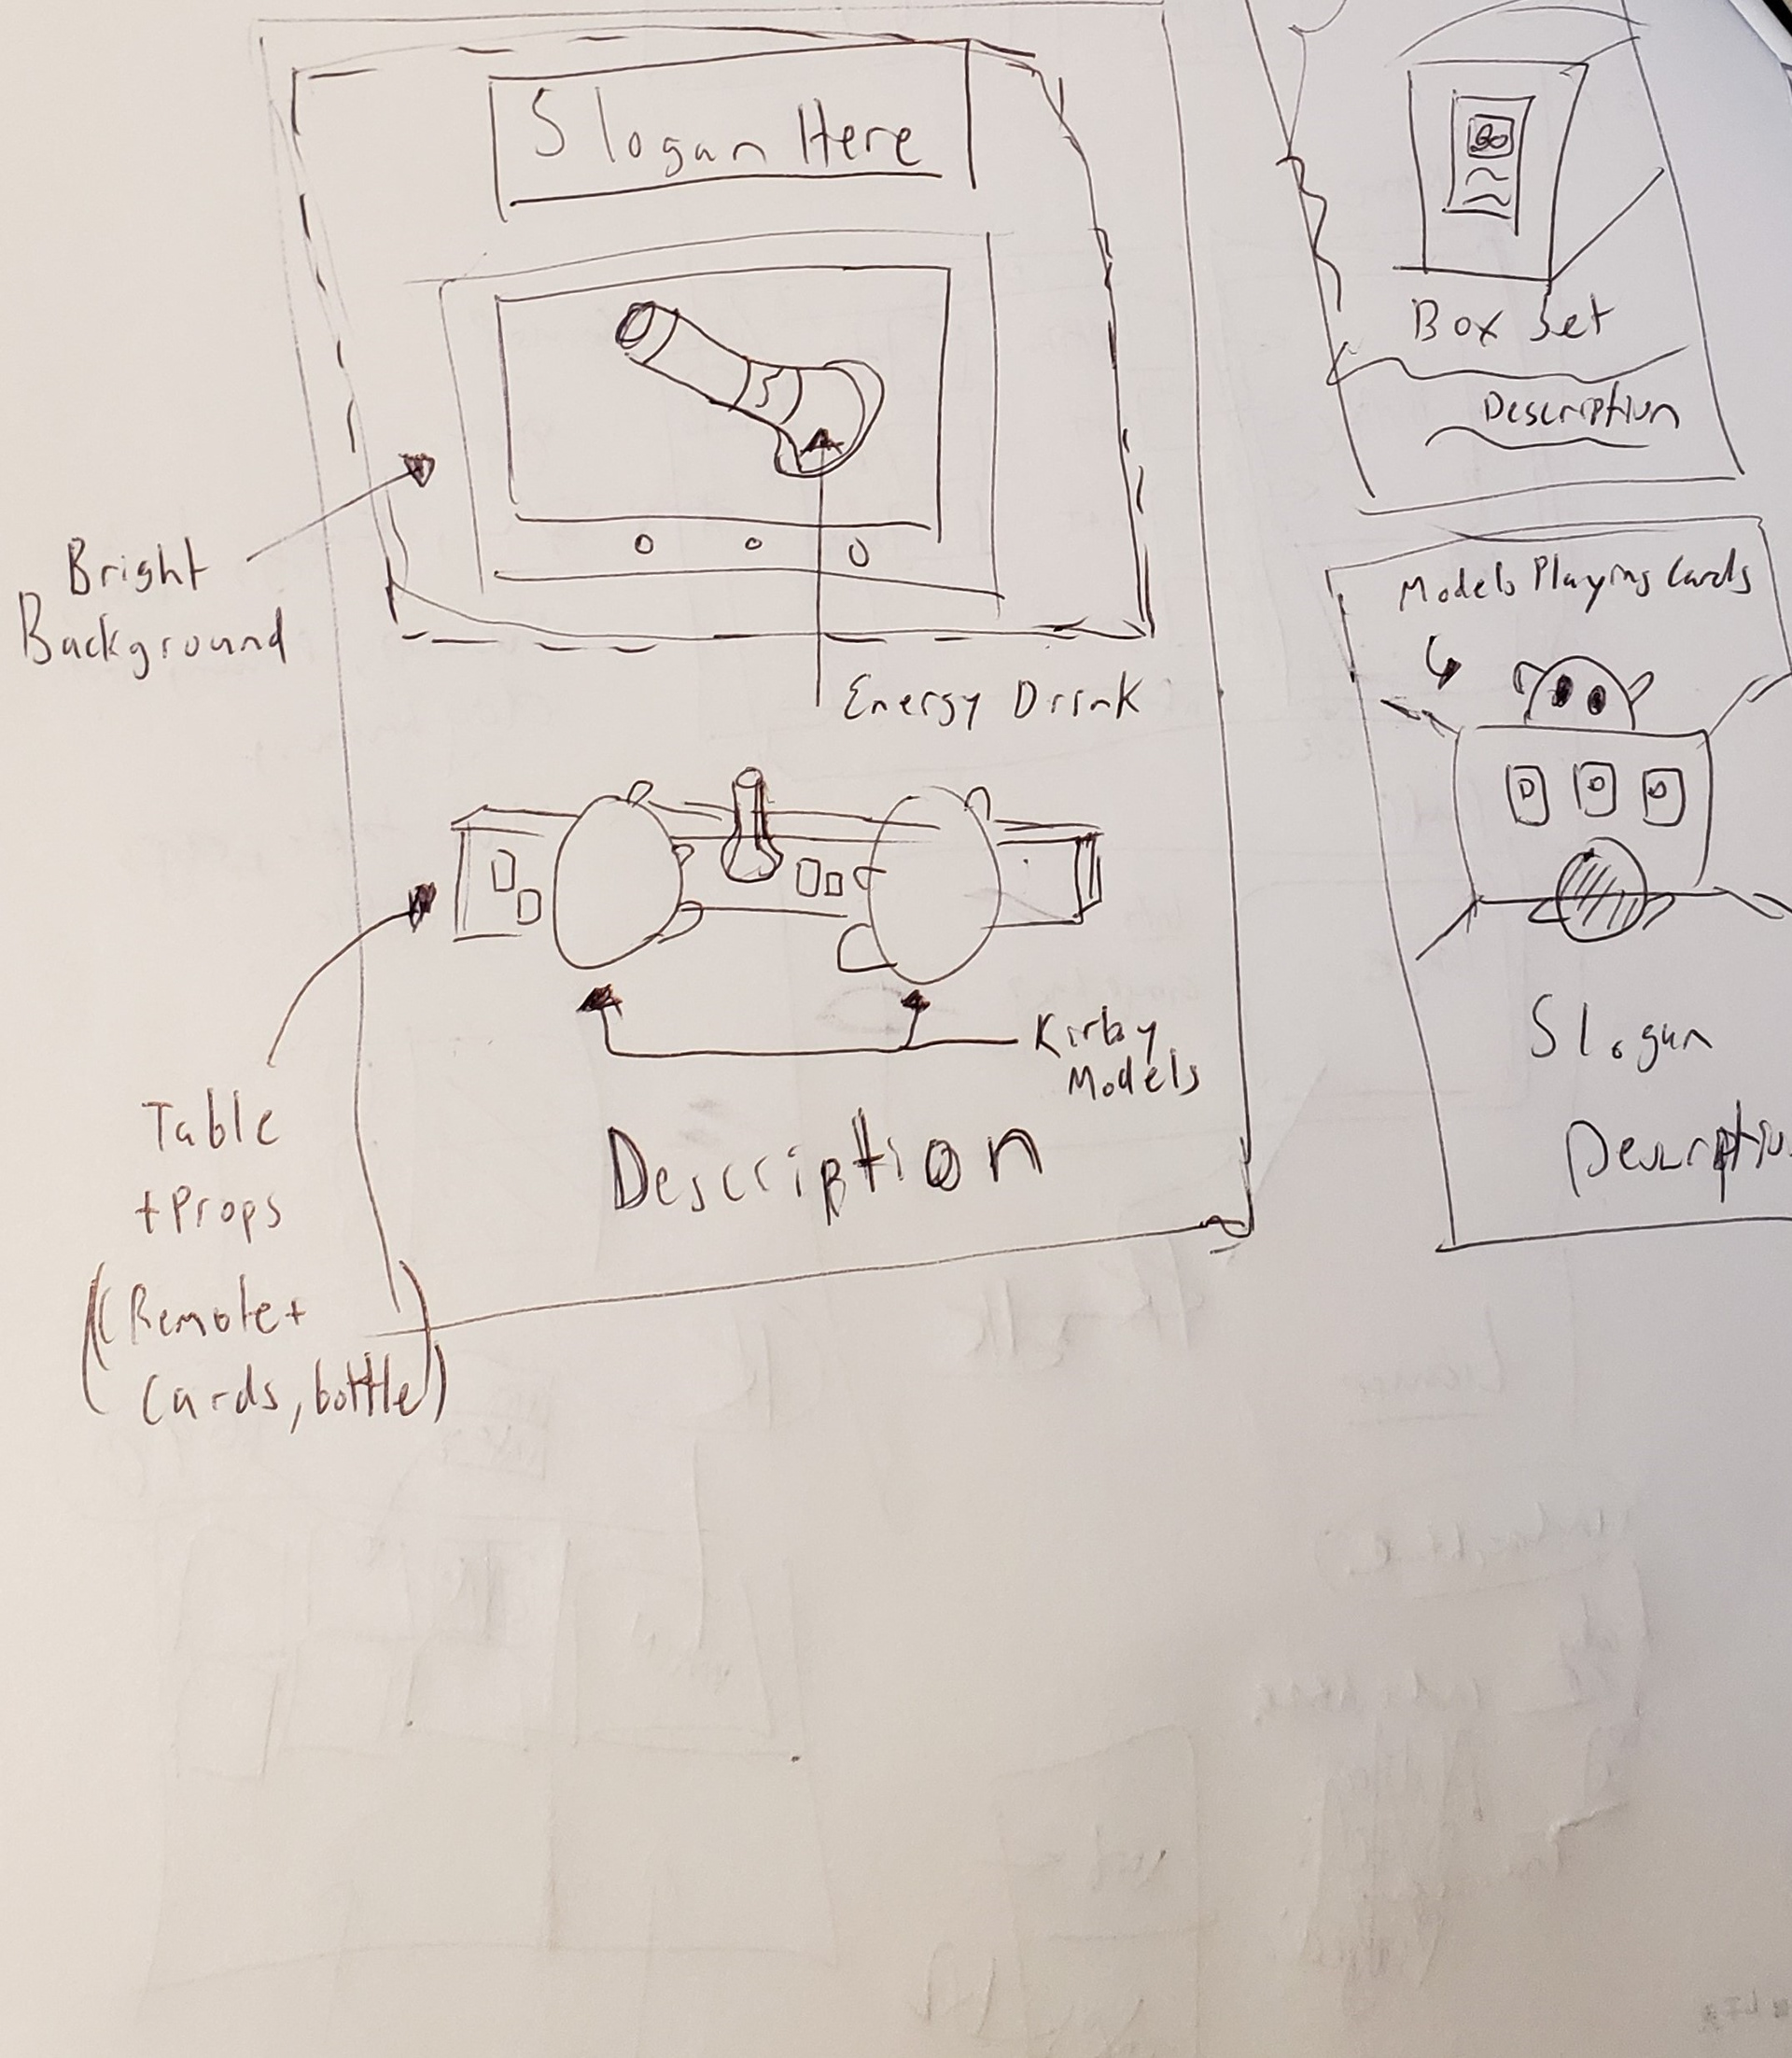 Slogan Here
Bright
Background
Energy Drink
Kirby
Models
Table
+ Props
(Remote +
Cards, bottle)
Description
Box Set
Description
Models Playing Cards
Slogan